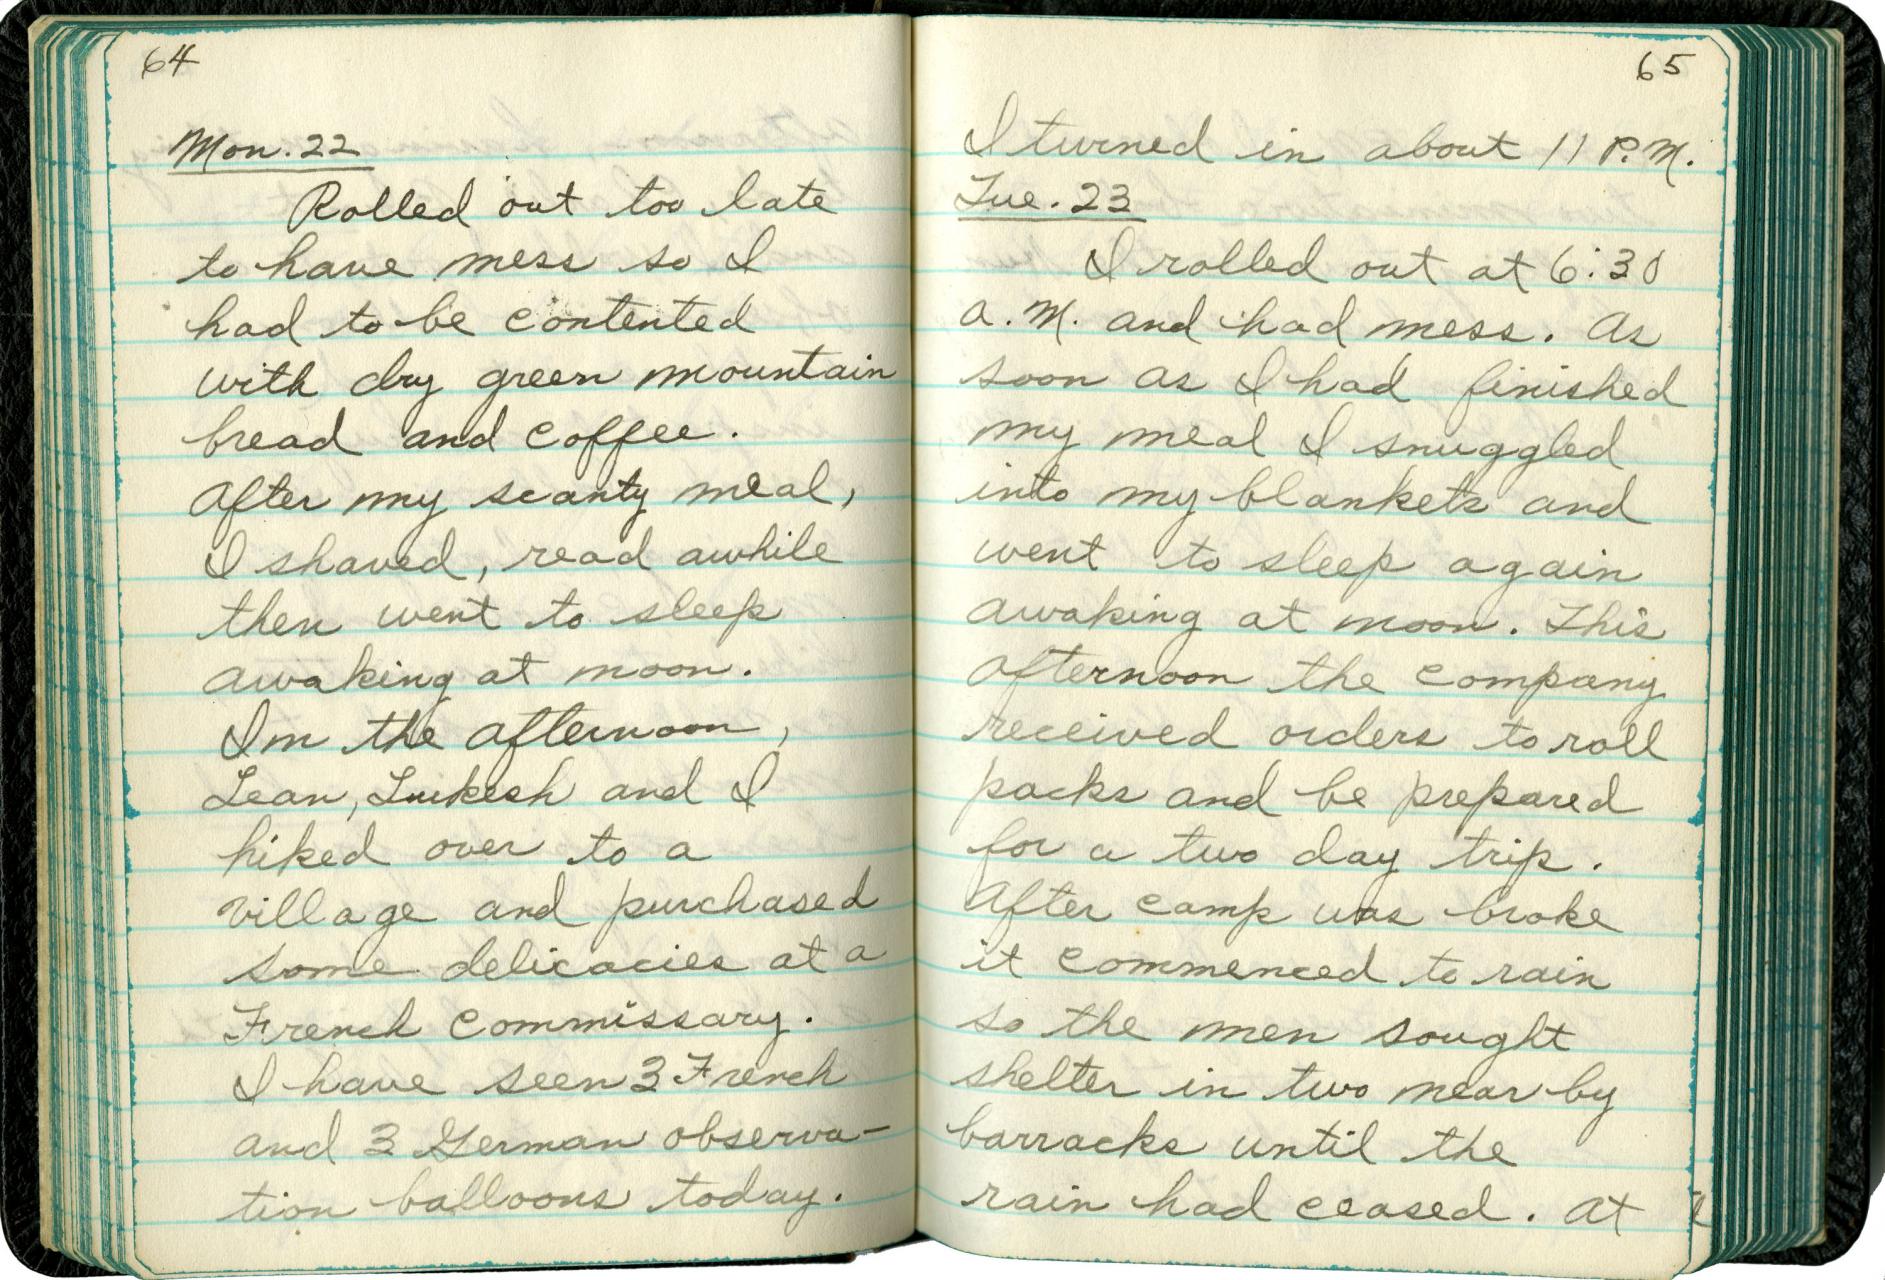 64
Mon. 22
Rolled out too late
to have mess so I
had to be contented
with dry green mountain
bread and coffee.
After my scanty meal,
I shaved, read awhile
then went to sleep
awaking at noon.
In the afternoon,
Lean, Lukesh and I
hiked over to a
village and purchased
some delicacies at a
French Commissary.
I have seen 3 French
and 3 German observa-
tion balloons today.
65
I turned in about 11 P.M.
Tue. 23
I rolled out at 6:30
a.M. and had mess. As
soon as I had finished
my meal I snuggled
into my blankets and
went to sleep again
awaking at noon. This
afternoon the Company
received orders to roll
packs and be prepared
for a two day trip.
After camp was broke
it commenced to rain
so the men sought
shelter in two near by
barracks until the
rain had ceased. At